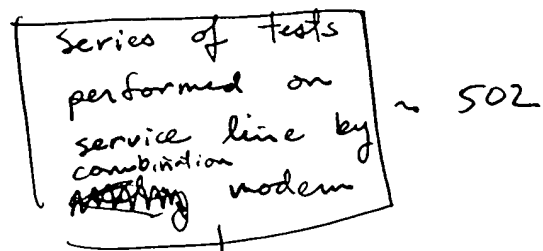 series of tests
performed on
service line by
combination
modem
~ 502